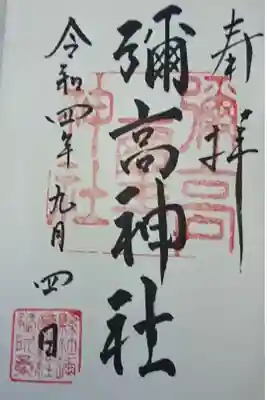 奉拝
彌高神社
令和四年九月四日
彌高神社